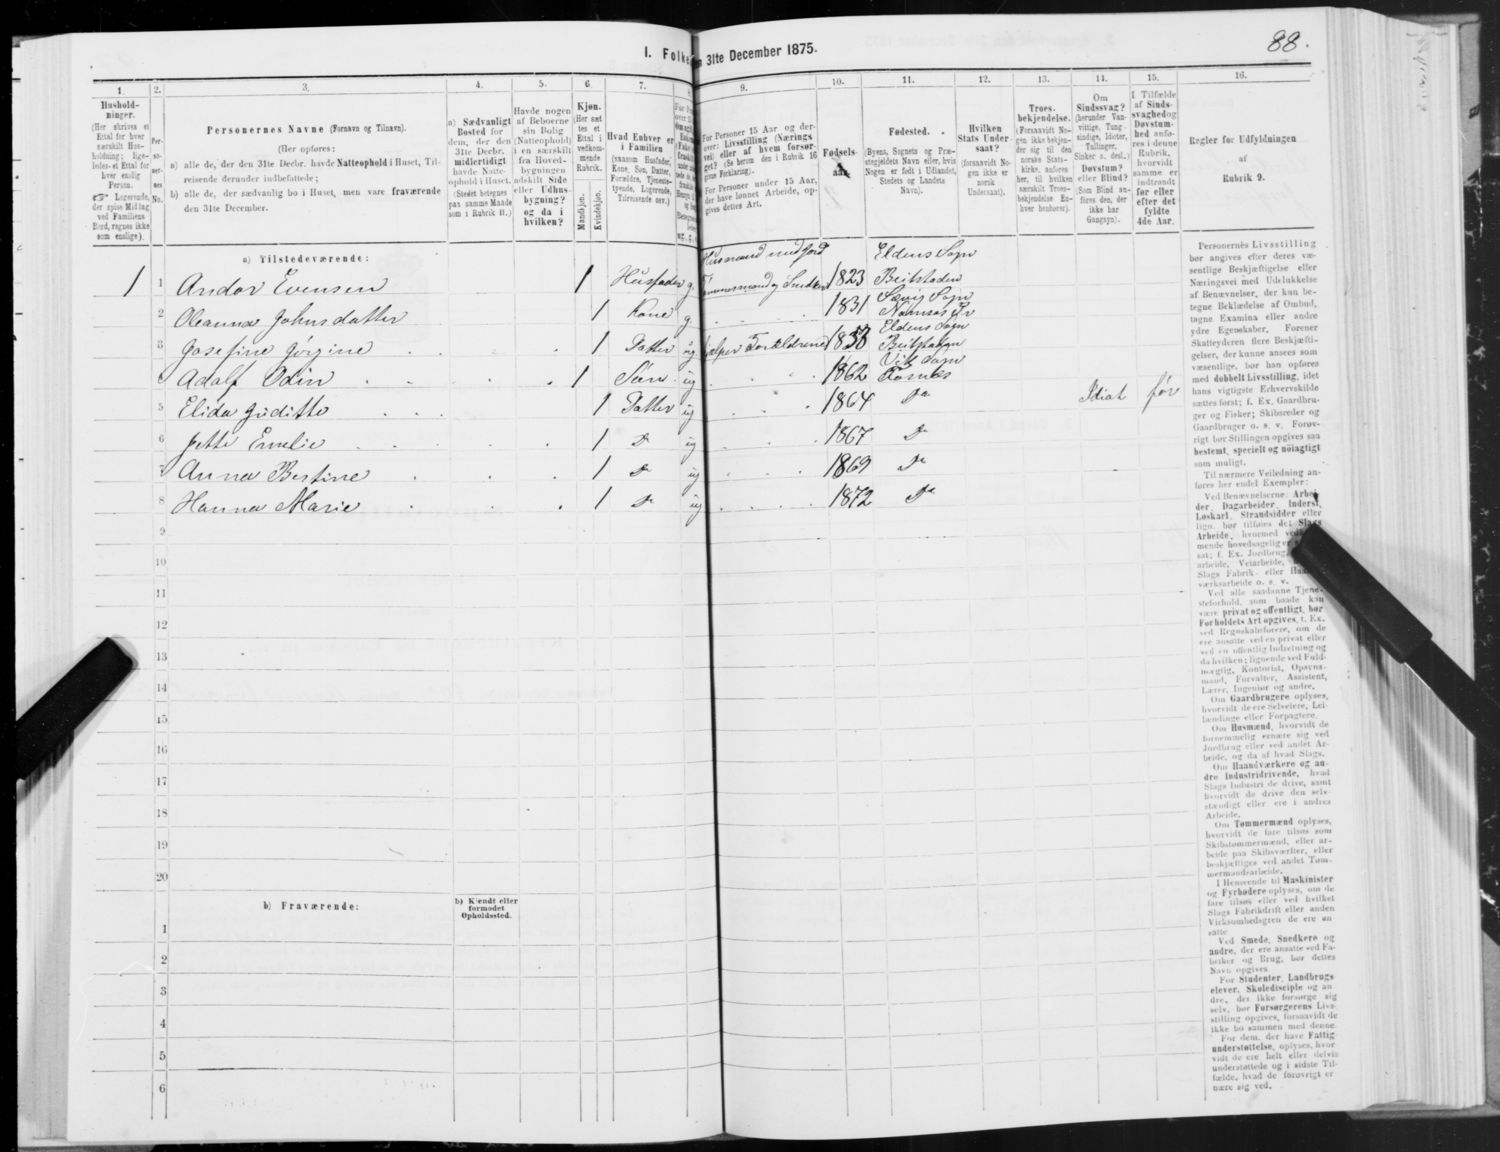 I. Folke
n 31te December 1875.
88.
1.
Hushold-
ninger.
(Her skrives et
Ettal for hver
særskilt Hus-
holdning; lige-
ledes et Ettal for
hver enslig
Person.
☞ Logerende,
der spise Middag
ved Familiens
Bord, regnes ikke
som enslige).
2.
Per-
so-
ner-
nes
No.
3.
Personernes Navne (Fornavn og Tilnavn).
(Her opføres:
a) alle de, der den 31te Decbr. havde Natteophold i Huset, Til-
reisende derunder indbefattede;
b) alle de, der sædvanlig bo i Huset, men vare fraværende
den 31te December.
4.
a) Sædvanligt
Bosted for
dem, der den
31te Decbr.
midlertidigt
havde Natte-
ophold i Huset.
(Stedet betegnes
paa samme Maade
som i Rubrik 11.)
5.
Havde nogen
af Beboerne
sin Bolig
(Natteophold)
i en særskilt
fra Hoved-
bygningen
adskilt Side
eller Udhus-
bygning?
og da i
hvilken?
6.
Kjøn.
(Her sæt-
tes et
Ettal i
vedkom-
mende
Rubrik.
Mandkjøn.
Kvindekjøn.
7.
Hvad Enhver er
i Familien
(saasom Husfader,
Kone, Søn, Datter,
Forældre, Tjeneste-
tyende, Logerende,
Tilreisende osv.)
9.
For Personer 15 Aar og der-
over: Livsstilling (Nærings-
vei) eller af hvem forsør-
get? (Se herom den i Rubrik 16
givne Forklaring).
For Personer under 15 Aar,
der have lønnet Arbeide, op-
gives dettes Art.
10.
Fødsels-
aar.
11.
Fødested.
(Byens, Sognets og Præ-
stegjeldets Navn eller, hvis
Nogen er født i Udlandet,
Stedets og Landets
Navn).
12.
Hvilken
Stats Under-
saat?
(forsaavidt No-
gen ikke er
norsk
Undersaat).
13.
Troes-
bekjendelse.
(Forsaavidt No-
gen ikke bekjen-
der sig til den
norske Stats-
kirke, anføres
her, til hvilken
særskilt Troes-
bekjendelse En-
hver henhører).
14.
Om
Sindssvag?
(herunder Van-
vittige, Tung-
sindige, Idioter,
Tullinger,
Sinker o. desl.)
Døvstum?
eller Blind?
(Som Blind an-
føres den, der
ikke har
Gangsyn).
15.
I Tilfælde
af Sinds-
svaghed og
Døvstum-
hed anfø-
res i denne
Rubrik,
hvorvidt
samme er
indtraadt
før eller
efter det
fyldte
4de Aar.
16.
Regler for Udfyldningen
af
Rubrik 9.
a) Tilstedeværende:
1 1 Andor Evensen 1 Husfader g Husmand med Jord Tømmermand og Snedker 1823 Eldens Sogn Beitstaden
2 Oleanna Johnsdatter 1 Kone g 1831 Sævig Sogn Namsos Pr
3 Josefine Jørgine 1 Datter ug hjælper Forældrene 1858 Eldens Sogn Beitstaden
4 Adolf Odin 1 Søn ug 1862 Vik Sogn Fosnæs
5 Elida Juditte 1 Datter ug 1864 Do Idiot før
6 Jette Emelie 1 Do ug 1867 Do
7 Anna Bestine 1 Do ug 1869 Do
8 Hanna Marie 1 Do ug 1872 Do
9
10
11
12
13
14
15
16
17
18
19
20
b) Fraværende:
b) Kjendt eller
formodet
Opholdssted.
1
2
3
4
5
6
Personernes Livsstilling
bør angives efter deres væ-
sentlige Beskjæftigelse eller
Næringsvei med Udelukkelse
af Benævnelser, der kun be-
tegne Beklædelse af Ombud,
tagne Examina eller andre
ydre Egenskaber. Forener
Skatteyderen flere Beskjæfti-
gelser, der kunne ansees som
væsentlige, bør han opføres
med dobbelt Livsstilling, idet
hans vigtigste Erhvervskilde
sættes først; f. Ex. Gaardbru-
ger og Fisker; Skibsreder og
Gaardbruger o. s. v. Forøv-
rigt bør Stillingen opgives saa
bestemt, specielt og nøiagtigt
som muligt.
Til nærmere Veiledning an-
føres her endel Exempler:
Ved Benævnelserne: Arbei-
der, Dagarbeider, Inderst,
Løskarl, Strandsidder eller
lign. bør tilføies det Slags
Arbeide, hvormed vedkom-
mende hovedsagelig er syssel-
sat; f. Ex. Jordbrug,
arbeide, Veiarbeide,
Slags Fabrik- eller Haand-
værksarbeide o. s. v.
Ved alle saadanne Tjene-
steforhold, som baade kan
være privat og offentligt, bør
Forholdets Art opgives, f. Ex.
ved Regnskabsførere, om de
ere ansatte ved en privat eller
ved en offentlig Indretning og
da hvilken; lignende ved Fuld-
mægtig, Kontorist, Opsyns-
mand, Forvalter, Assistent,
Lærer, Ingeniør og andre.
Om Gaardbrugere oplyses,
hvorvidt de ere Selveiere, Lei-
lændinge eller Forpagtere.
Om Husmænd, hvorvidt de
fornemmelig ernære sig ved
Jordbrug eller ved andet Ar-
beide, og da af hvad Slags.
Om Haandværkere og an-
dre Industridrivende, hvad
Slags Industri de drive, samt
hvorvidt de drive den selv-
stændigt eller ere i andres
Arbeide.
Om Tømmermænd oplyses,
hvorvidt de fare tilsøs som
Skibstømmermænd, eller ar-
beide paa Skibsværfter, eller
beskjæftiges ved andet Tøm-
mermandsarbeide.
I Henseende til Maskinister
og Fyrbødere oplyses, om de
fare tilsøs eller ved hvilket
Slags Fabrikdrift eller anden
Virksomhedsgren de ere an-
satte.
Ved Smede, Snedkere og
andre, der ere ansatte ved Fa-
briker og Brug, bør dettes
Navn opgives.
For Studenter, Landbrugs-
elever, Skoledisciple og an-
dre, der ikke forsørge sig
selv, bør Forsørgerens Livs-
stilling opgives, forsaavidt de
ikke bo sammen med denne.
For dem, der have Fattig-
understøttelse, oplyses, hvor-
vidt de ere helt eller delvis
understøttede og i sidste Til-
fælde, hvad de forøvrigt er-
nære sig ved.